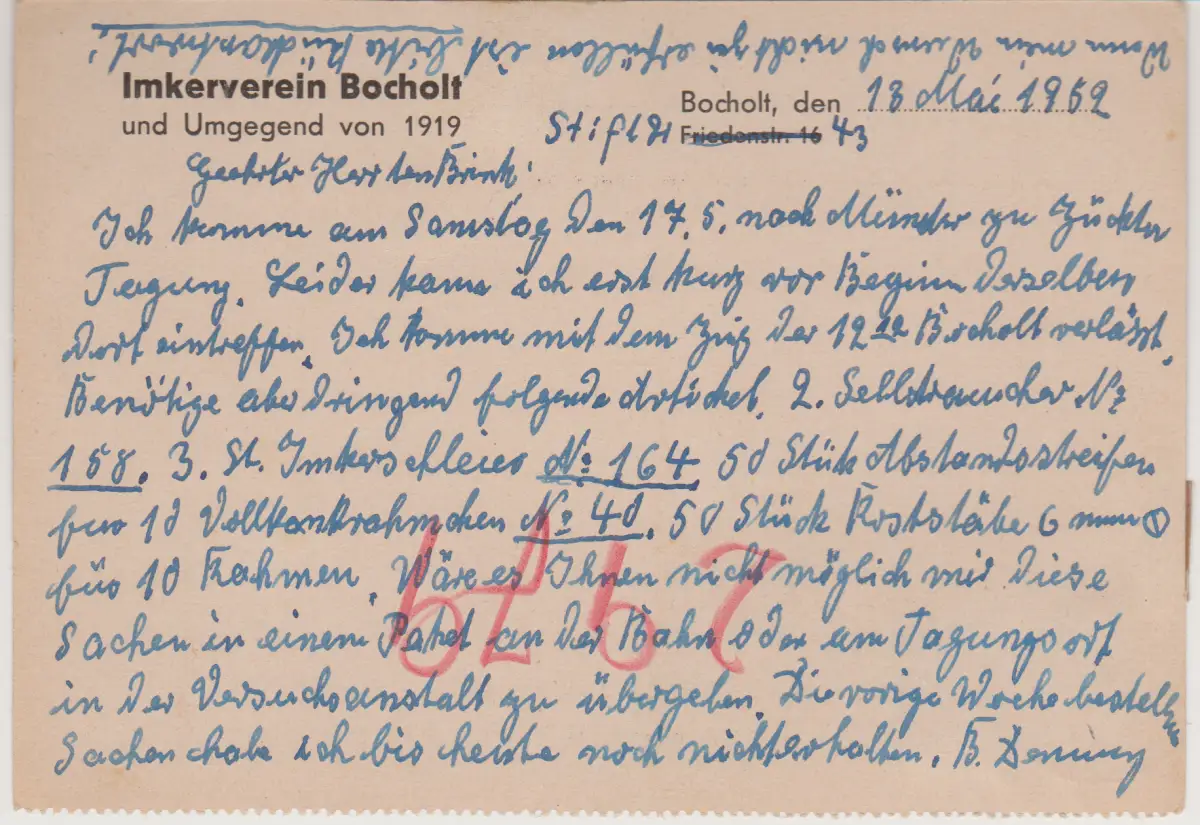 Wenn mein Wunsch nicht zu erfüllen ist bitte Rückantwort!
Imkerverein Bocholt
und Umgegend von 1919
Bocholt, den 13 Mai 1952
Friedenstr. 16 43
Geehrter Herr ten Brink!
Ich komme am Samstag den 17.5. nach Münster zu Züchter
Tagung. Leider kann ich erst kurz vor Beginn derselben
dort eintreffen. Ich komme mit dem Zug der 12 Bocholt verlässt.
Benötige aber dringend folgende Artickel. 2. Selbstraucher No
158. 3. St. Imkerschleier No 164 50 Stük Abstandsstreifen
für 10 Rähmchen No 40. 50 Stück Roststäbe 6 mm
für 10 Rahmen. Wäre es Ihnen nicht möglich mir diese
Sachen in einem Paket an der Bahn oder am Tagungsort
in der Versuchsanstalt zu übergeben. Die vorige Woche bestellten
Sachen habe ich bis heute noch nicht erhalten. B.